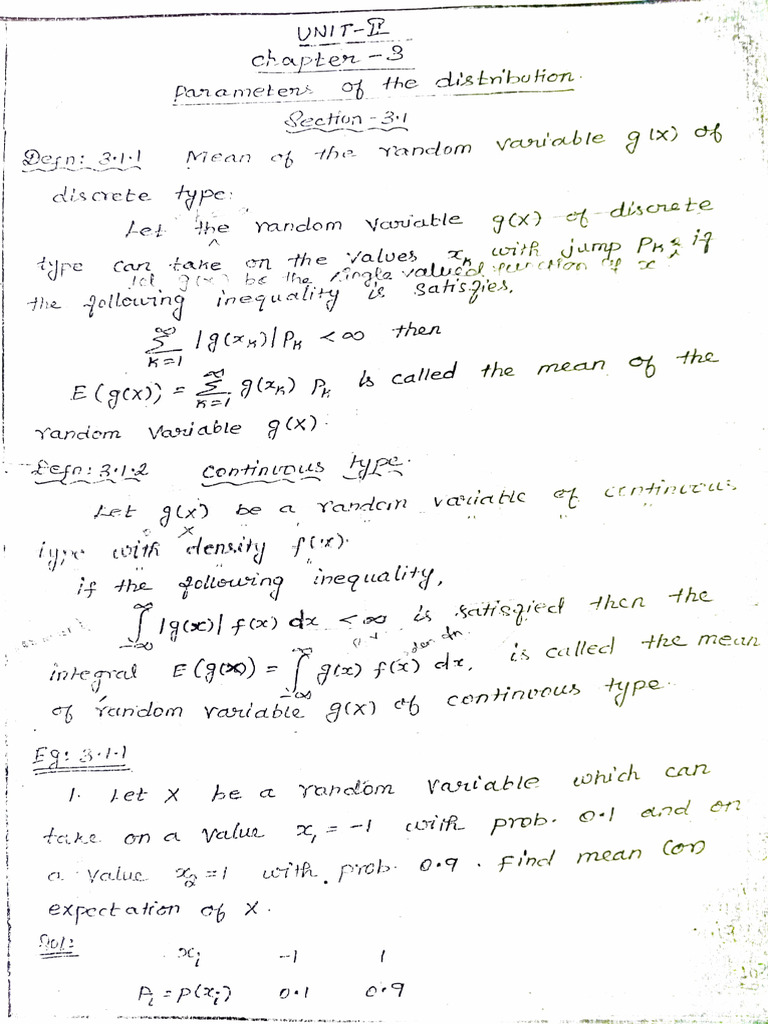 UNIT-II
Chapter-3
Parameters of the distribution.
Section-3.1
Defn: 3.1.1 Mean of the random variable g(x) of
discrete type:
Let the random variable g(x) of discrete
type can take on the values xₖ with jump Pₖ & if
let g(x) be the single valued function of x
the following inequality is satisfies,
∑_{k=1}^{∞} |g(xₖ)| Pₖ < ∞ then
E(g(x)) = ∑_{k=1}^{∞} g(xₖ) Pₖ is called the mean of the
random variable g(x).
Defn: 3.1.2 continuous type.
Let g(x) be a random variable of continuous
x
type with density f(x).
if the following inequality,
∫_{-∞}^{∞} |g(x)| f(x) dx < ∞ is satisfied then the
integral E(g(x)) = ∫_{-∞}^{∞} g(x) f(x) dx, is called the mean
of random variable g(x) of continuous type.
Eg: 3.1.1
1. Let X be a random variable which can
take on a value x₁ = -1 with prob. 0.1 and on
a value x₂ = 1 with prob. 0.9. Find mean (or)
expectation of X.
Sol:
xᵢ -1 1
Pᵢ = P(xᵢ) 0.1 0.9